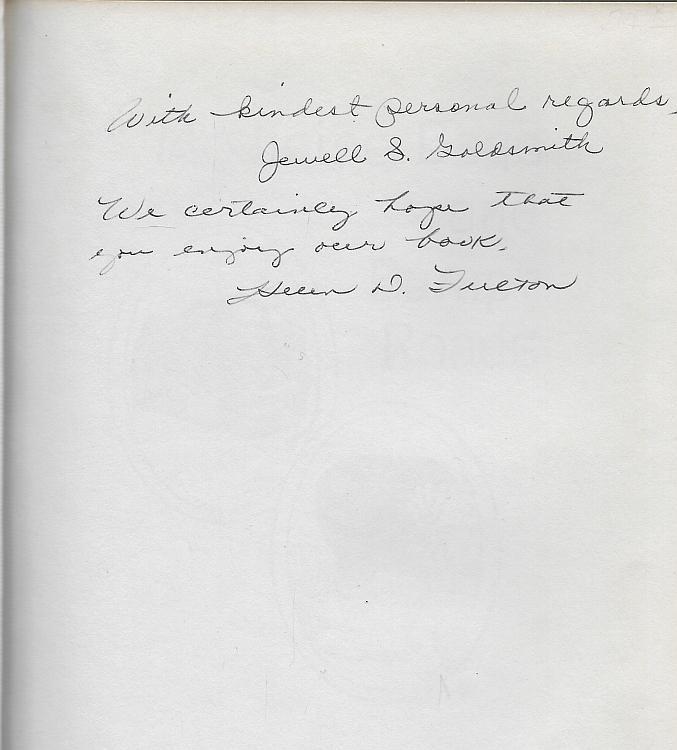 With kindest personal regards,
Jewell S. Goldsmith
We certainly hope that
you enjoy our book.
Helen D. Fulton